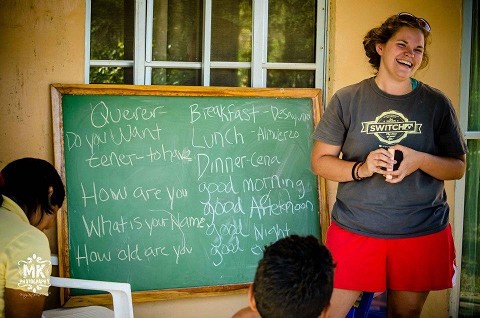 Querer-
Do you Want
tener- to have
How are you
What is your Name
How old are you
Breakfast - Desayuno
Lunch - Almuerzo
Dinner - Cena
good morning
good Afternoon
good Night
good
SWITCH
MK